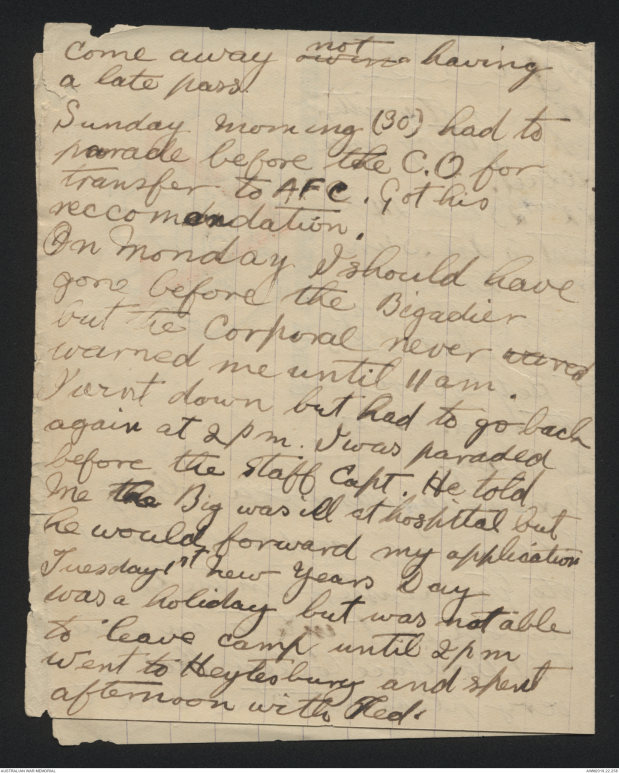 come away not having
a late pass.
Sunday morning (30) had to
parade before the C.O for
transfer to AFC. Got his
reccomandation.
On Monday I should have
gone before the Bigadier
but te Corporal never wared
warned me until 11 am.
I wnt down but had to go back
again at 2 p m. I was paraded
before the staff Capt. He told
me the Big was ill at hospital but
he would forward my application
Tuesday 1st New Years Day
was a holiday but was not able
to leave camp until 2 pm
went to Heytesbury and spent
afternoon with Ted.
AUSTRALIAN WAR MEMORIAL